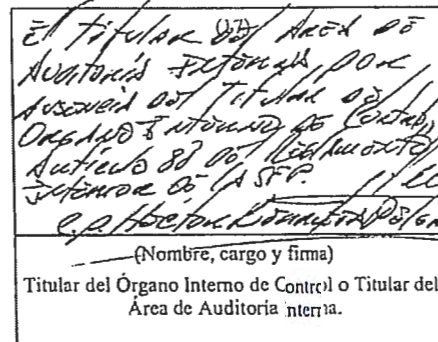 El Titular del Area de
Auditoría Interna, por
Ausencia del Titular del
Organo Interno de Control,
Artículo 88 del Reglamento
Interior de la SFP.
C.P. Héctor
(Nombre, cargo y firma)
Titular del Órgano Interno de Control o Titular del
Área de Auditoría Interna.